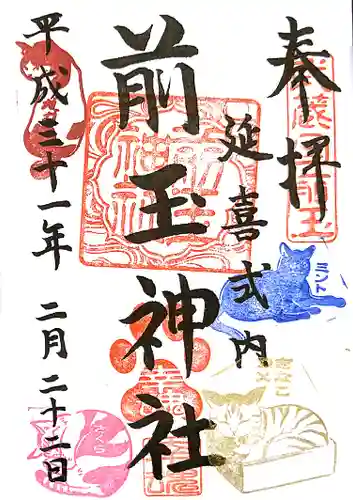 奉拝
延喜式内
前玉神社
平成三十一年 二月二十二日
ミント